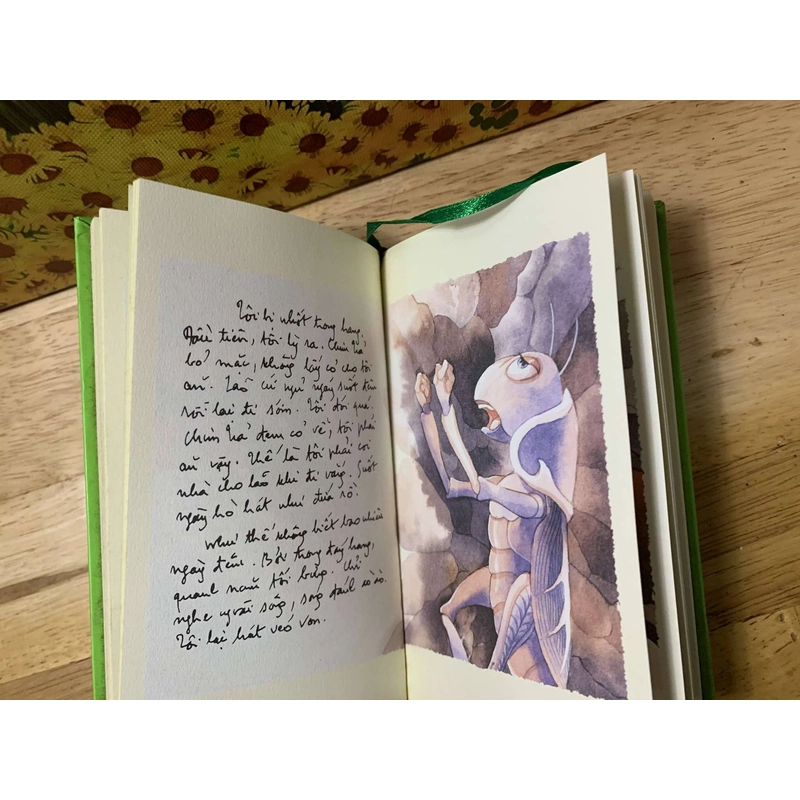 Tôi bị nhốt trong hang.
Đầu tiên, tôi lỳ ra. Chim Trả
bỏ mặc, không lấy cỏ cho tôi
ăn. Lão cứ ngủ ngáy suốt đêm
rồi lại đi sớm. Tôi đói quá.
Chim Trả đem cỏ về, tôi phải
ăn vậy. Thế là tôi phải coi
nhà cho lão khi đi vắng. Suốt
ngày hò hát như đứa rồ.
Như thế không biết bao nhiêu
ngày đêm. Bởi trong đáy hang,
quanh năm tối bưng. Chỉ
nghe ngoài sông, sóng đánh ồ ồ.
Tôi lại hát véo von.